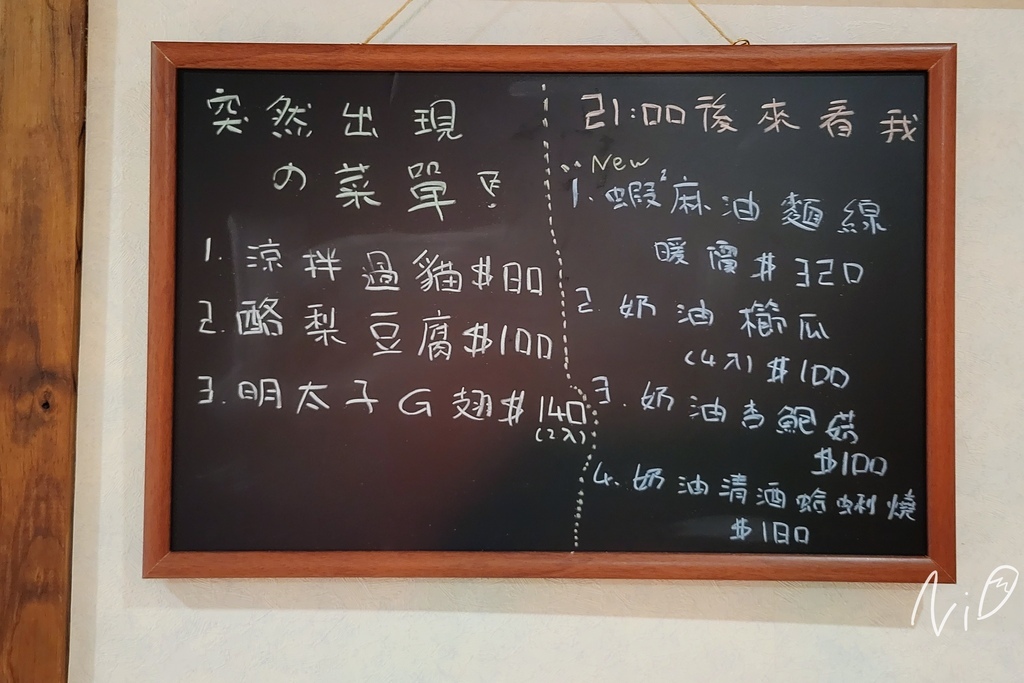 突然出現
の菜單!
1. 涼拌過貓$80
2. 酪梨豆腐$100
3. 明太子G翅$140
(2入)
21:00後來看我
New
1. 蝦²麻油麵線
暖價$320
2. 奶油櫛瓜
(4入)$100
3. 奶油杏鮑菇
$100
4. 奶油清酒蛤蜊燒
$180